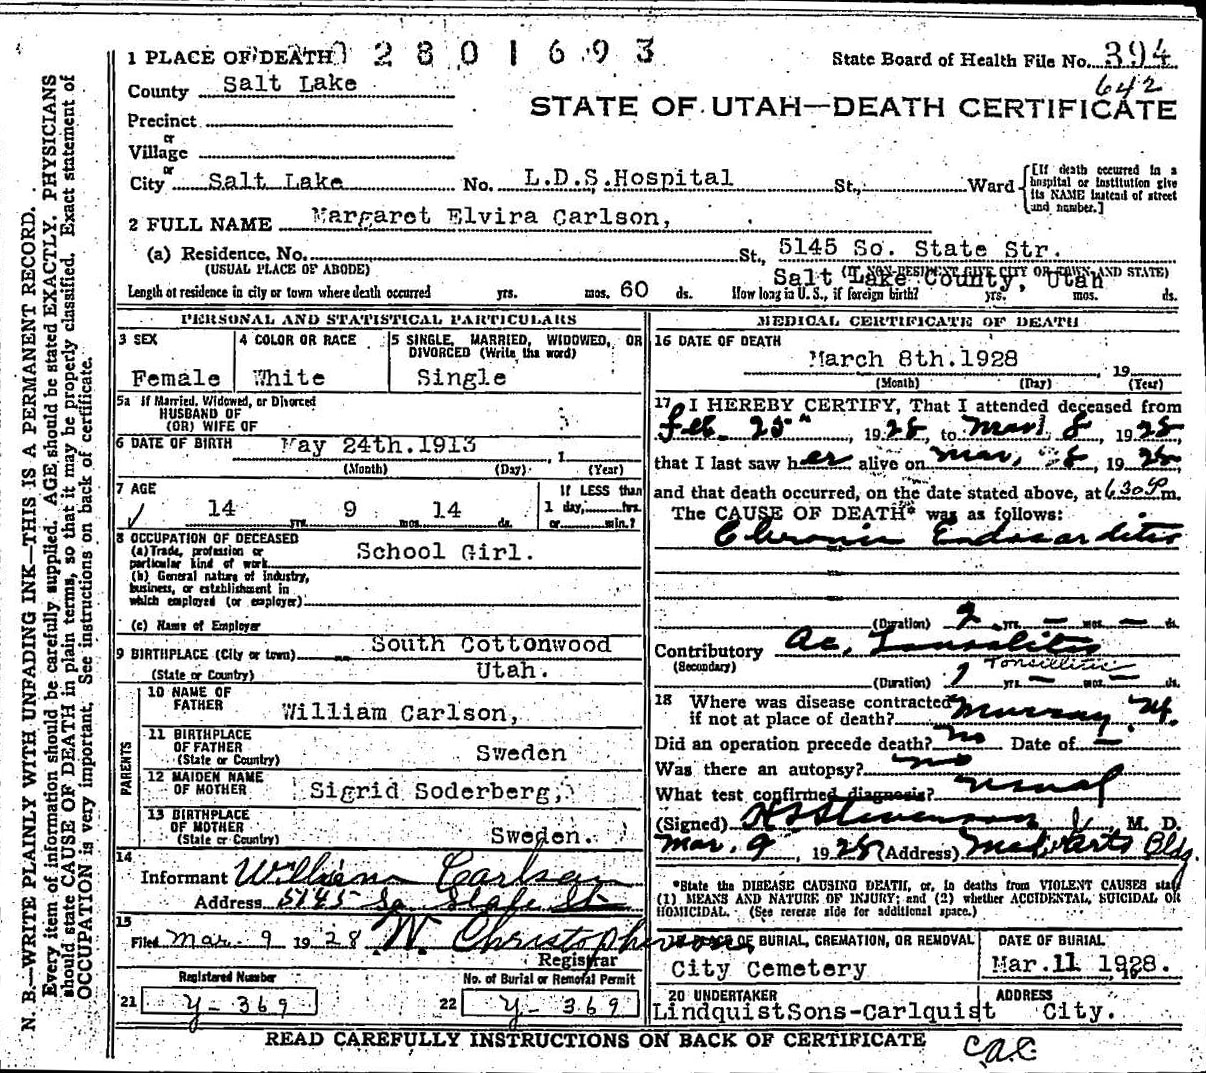 1 PLACE OF DEATH 2801693
State Board of Health File No. 394
642
County Salt Lake
STATE OF UTAH—DEATH CERTIFICATE
Precinct
or
Village
or
City Salt Lake No. L.D.S. Hospital St., Ward
[If death occurred in a hospital or institution give its NAME instead of street and number.]
2 FULL NAME Margaret Elvira Carlson,
(a) Residence, No. St, 5145 So. State Str.
(USUAL PLACE OF ABODE) Salt Lake County, Utah
(IF NON-RESIDENT GIVE CITY OR TOWN AND STATE)
Length of residence in city or town where death occurred yrs. mos. 60 ds. How long in U. S., if foreign birth? yrs. mos. ds.
PERSONAL AND STATISTICAL PARTICULARS
3 SEX
Female
4 COLOR OR RACE
White
5 SINGLE, MARRIED, WIDOWED, OR
DIVORCED (Write the word)
Single
5a If Married, Widowed, or Divorced
HUSBAND OF
(OR) WIFE OF
6 DATE OF BIRTH May 24th.1913, 1
(Month) (Day) (Year)
7 AGE
14 yrs. 9 mos. 14 ds.
If LESS than
1 day, hrs.
or min.?
8 OCCUPATION OF DECEASED
(a) Trade, profession or
particular kind of work School Girl.
(b) General nature of industry,
business, or establishment in
which employed (or employer)
(c) Name of Employer
9 BIRTHPLACE (City or town) South Cottonwood
(State or Country) Utah.
PARENTS
10 NAME OF
FATHER William Carlson,
11 BIRTHPLACE
OF FATHER
(State or Country) Sweden
12 MAIDEN NAME
OF MOTHER Sigrid Soderberg,
13 BIRTHPLACE
OF MOTHER
(State or Country) Sweden.
14
Informant William Carlson
Address 5145 So State St
15
Filed Mar. 9 1928 W. Christopherson
Registrar
Registered Number
21 Y-369
No. of Burial or Removal Permit
22 Y-369
MEDICAL CERTIFICATE OF DEATH
16 DATE OF DEATH
March 8th.1928 19
(Month) (Day) (Year)
17 I HEREBY CERTIFY, That I attended deceased from
Feb. 25, 1928, to Mar 8, 1928,
that I last saw her alive on Mar. 8, 1928
and that death occurred, on the date stated above, at 6:30 P m.
The CAUSE OF DEATH* was as follows:
Chronic Endocarditis
(Duration) 2 yrs. — mos. — ds.
Contributory Ac. Tonsilitis
(Secondary) Tonsillitis
(Duration) yrs. — mos. — ds.
18 Where was disease contracted
if not at place of death? Murray Ut.
Did an operation precede death? no Date of —
Was there an autopsy? no
What test confirmed diagnosis? usual
(Signed) Stevenson M. D.
Mar. 9, 1928 (Address) Med. Arts Bldg.
*State the DISEASE CAUSING DEATH, or, in deaths from VIOLENT CAUSES state
(1) MEANS AND NATURE OF INJURY; and (2) whether ACCIDENTAL, SUICIDAL OR
HOMICIDAL. (See reverse side for additional space.)
OF BURIAL, CREMATION, OR REMOVAL
City Cemetery
DATE OF BURIAL
Mar.11 1928.
20 UNDERTAKER
LindquistSons-Carlquist
ADDRESS
City.
READ CAREFULLY INSTRUCTIONS ON BACK OF CERTIFICATE
N. B.—WRITE PLAINLY WITH UNFADING INK—THIS IS A PERMANENT RECORD.
Every item of information should be carefully supplied. AGE should be stated EXACTLY. PHYSICIANS
should state CAUSE OF DEATH in plain terms, so that it may be properly classified. Exact statement of
OCCUPATION is very important. See instructions on back of certificate.